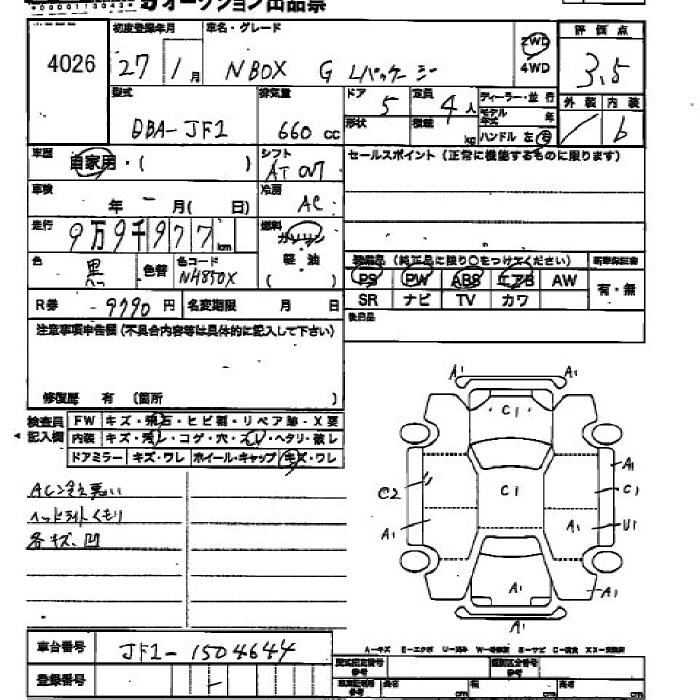 オークション出品票
4026
初度登録年月 車名・グレード 評価点
27 / 1 月 NBOX G Lパッケージ 2WD 4WD 3.5
型式 排気量 ドア 定員 ディーラー・並行 外装 内装
DBA-JF1 660 cc 5 4人 モデル年式 年 / b
形状 積載 kg ハンドル 左 右
車歴 自家用・( ) シフト AT セールスポイント (正常に機能するものに限ります)
車検 年 - 月 ( 日) 冷房 AC
走行 9万9千977km 燃料 ガソリン 軽油 ( )
色 黒 色替 色コード NH850X
装備品 (純正品に限り○をつけてください)
PS PW ABS エアB AW 有・無
SR ナビ TV カワ
R券 9790 円 名変期限 月 日 後日品
注意事項申告欄 (不具合内容等は具体的に記入して下さい)
修復歴 有 (箇所 )
検査員記入欄 FW キズ・飛石・ヒビ割・リペア跡・X要
内装 キズ・汚れ・コゲ・穴・スレ・ヘタリ・破レ
ドアミラー キズ・ワレ ホイール・キャップ キズ・ワレ
ACガス悪い
ヘッドライトくもり
各キズ、凹
A1 A1
C1
A1
C2 C1 C1
A1 A1 U1
A1 A1
A1
車台番号 JF1-1504644
登録番号
A-キズ E-エクボ U-凹み W-補修跡 S-サビ C-腐食 XX-交換済
型式指定番号 類別区分番号
参考 参考
長さ cm 幅 cm 高さ cm